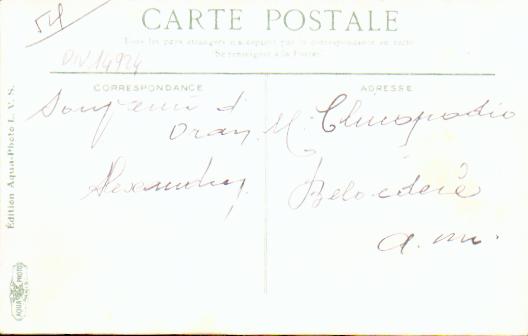 54
CARTE POSTALE
Tous les pays étrangers n'acceptent pas la correspondance au recto
Se renseigner à la Poste
DIV14924
CORRESPONDANCE
ADRESSE
Souvenir d
Oran
M.
Alexandry
Belvédère
a. m.
Édition Aqua-Photo L. V. S.
AQUA PHOTO